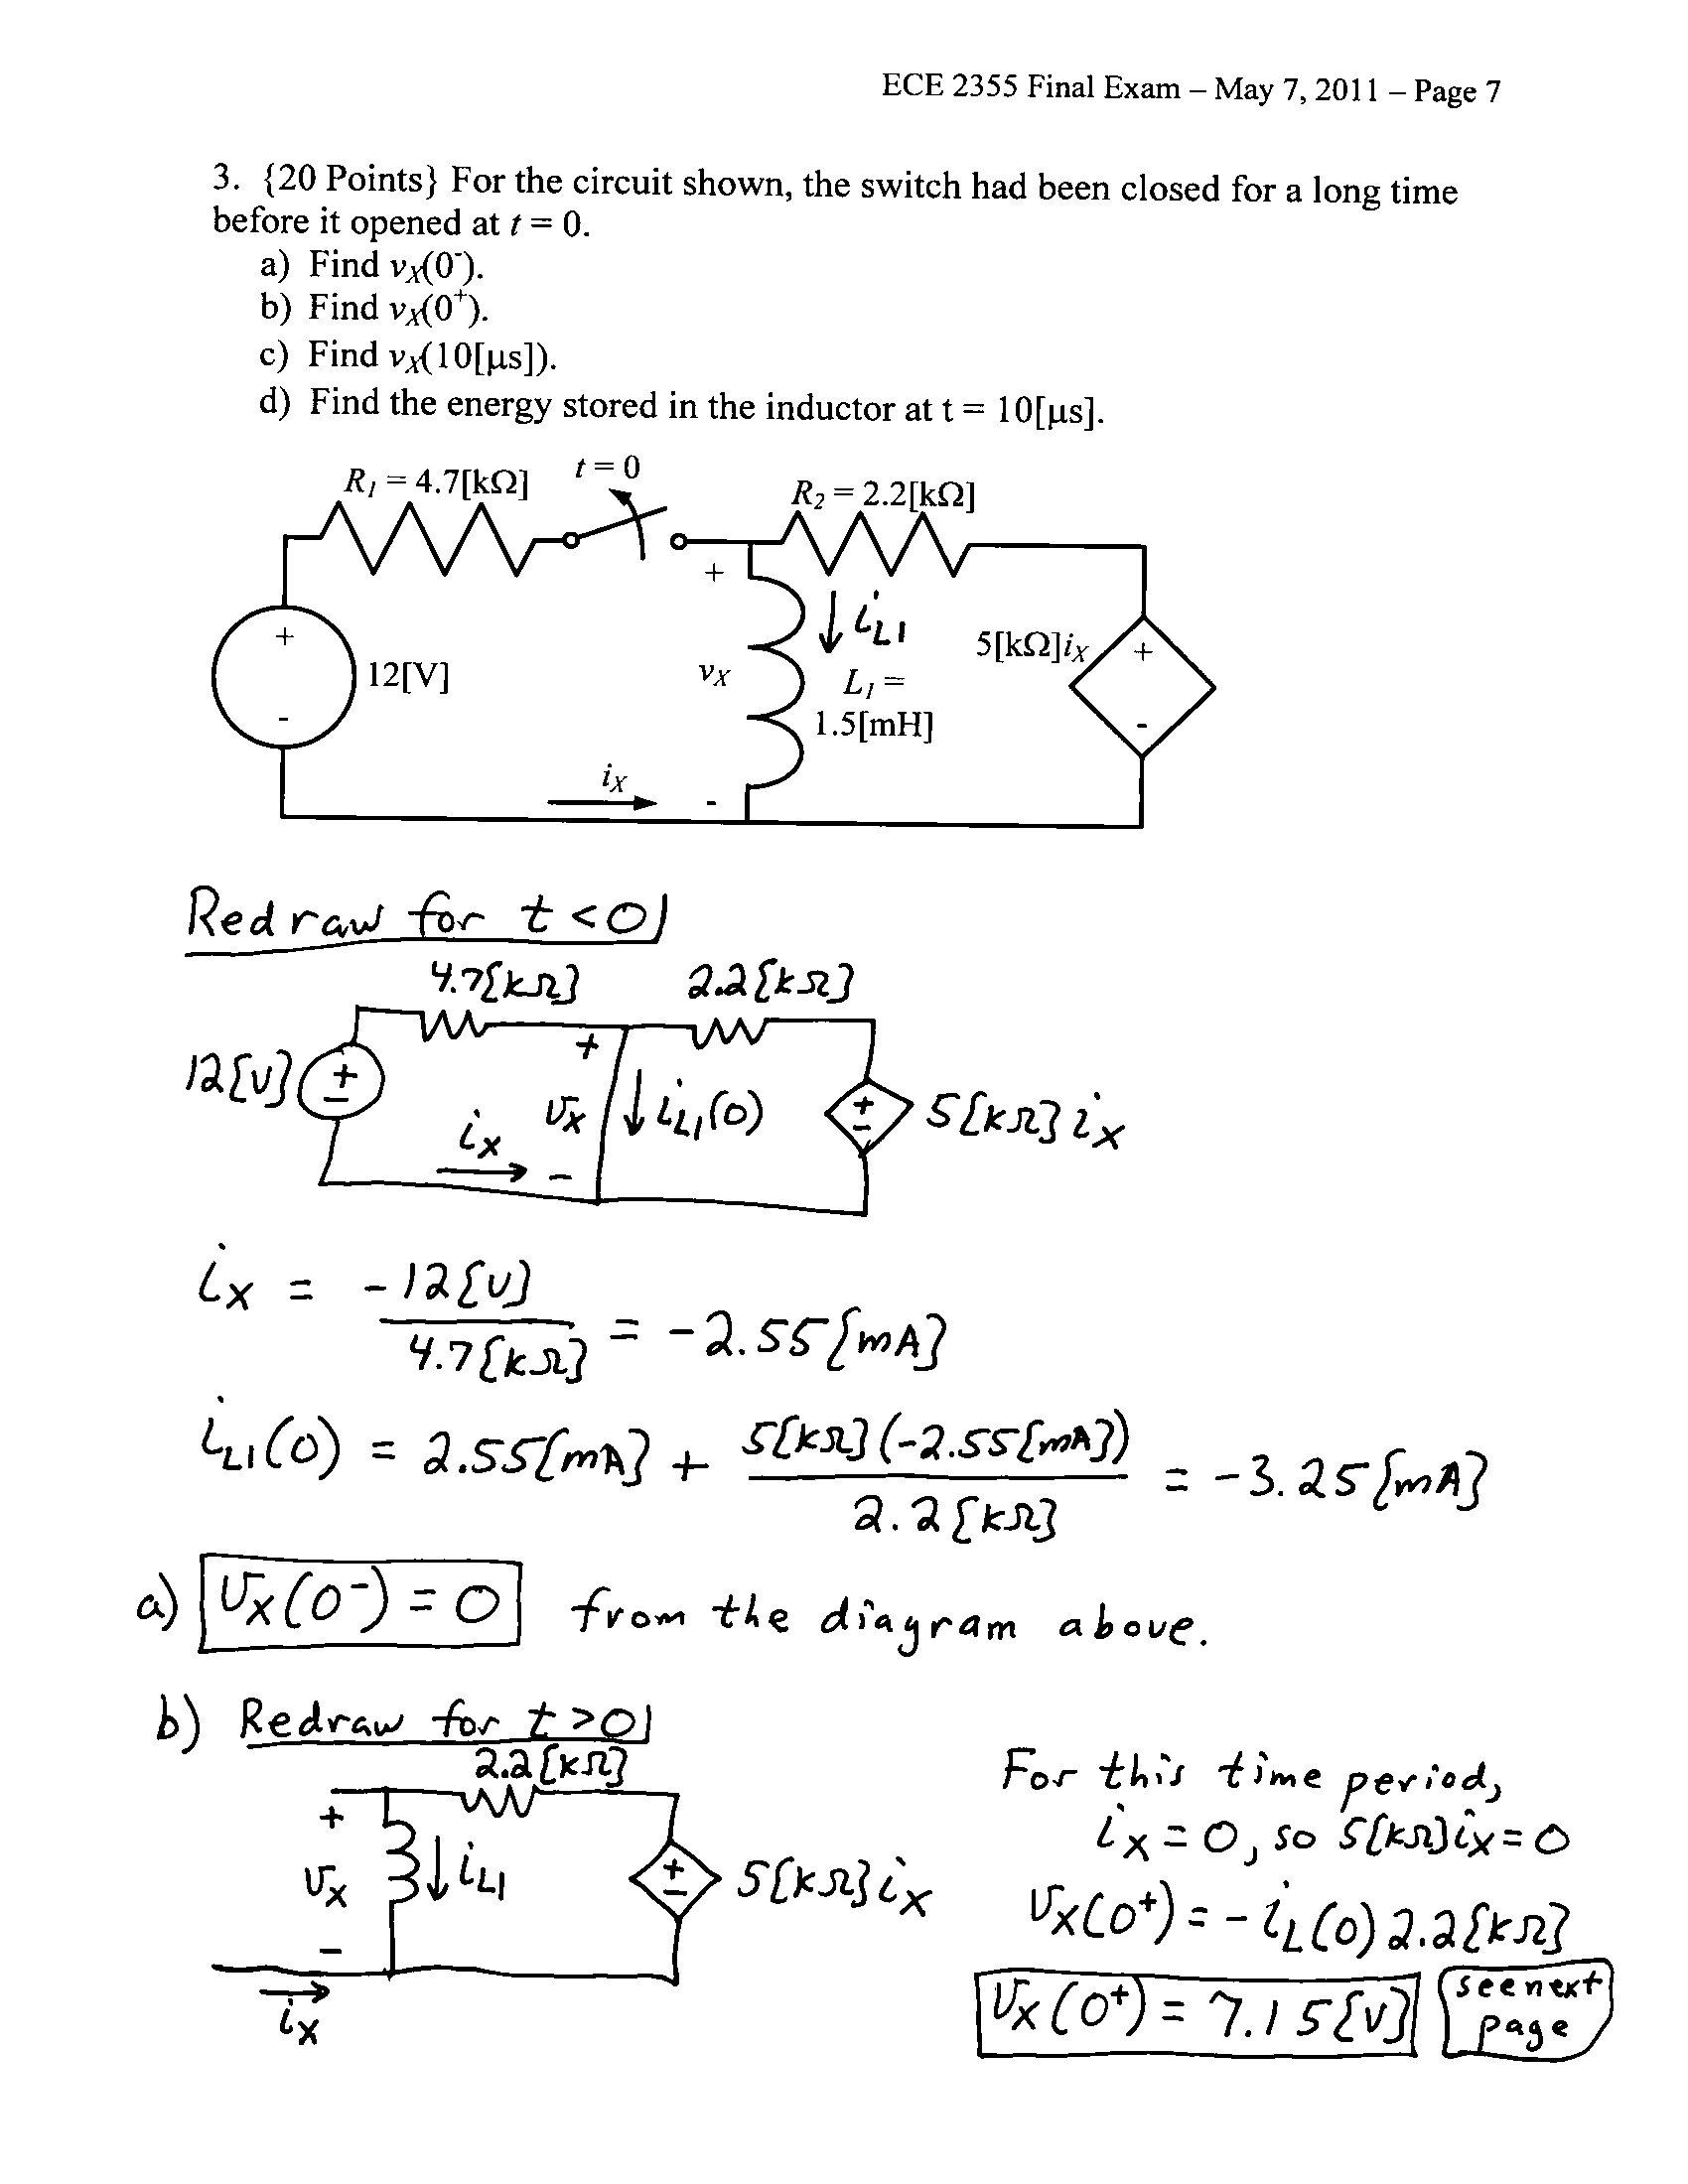 ECE 2355 Final Exam – May 7, 2011 – Page 7
3. {20 Points} For the circuit shown, the switch had been closed for a long time
before it opened at t = 0.
a) Find vX(0⁻).
b) Find vX(0⁺).
c) Find vX(10[μs]).
d) Find the energy stored in the inductor at t = 10[μs].
R1 = 4.7[kΩ]
t = 0
R2 = 2.2[kΩ]
+
iL1
+
12[V]
-
vX
L1 =
1.5[mH]
5[kΩ]iX
+
-
iX
-
Redraw for t < 0
4.7[kΩ] 2.2[kΩ]
12[V] + - + vX - iL1(0) + - 5[kΩ] iX
iX
iX = -12[V] / 4.7[kΩ] = -2.55[mA]
iL1(0) = 2.55[mA] + 5[kΩ](-2.55[mA]) / 2.2[kΩ] = -3.25[mA]
a) vX(0⁻) = 0 from the diagram above.
b) Redraw for t > 0
2.2[kΩ]
+ vX - iL1 + - 5[kΩ] iX
iX
For this time period,
iX = 0, so 5[kΩ]iX = 0
vX(0⁺) = -iL(0) 2.2[kΩ]
vX(0⁺) = 7.15[V]
see next
page